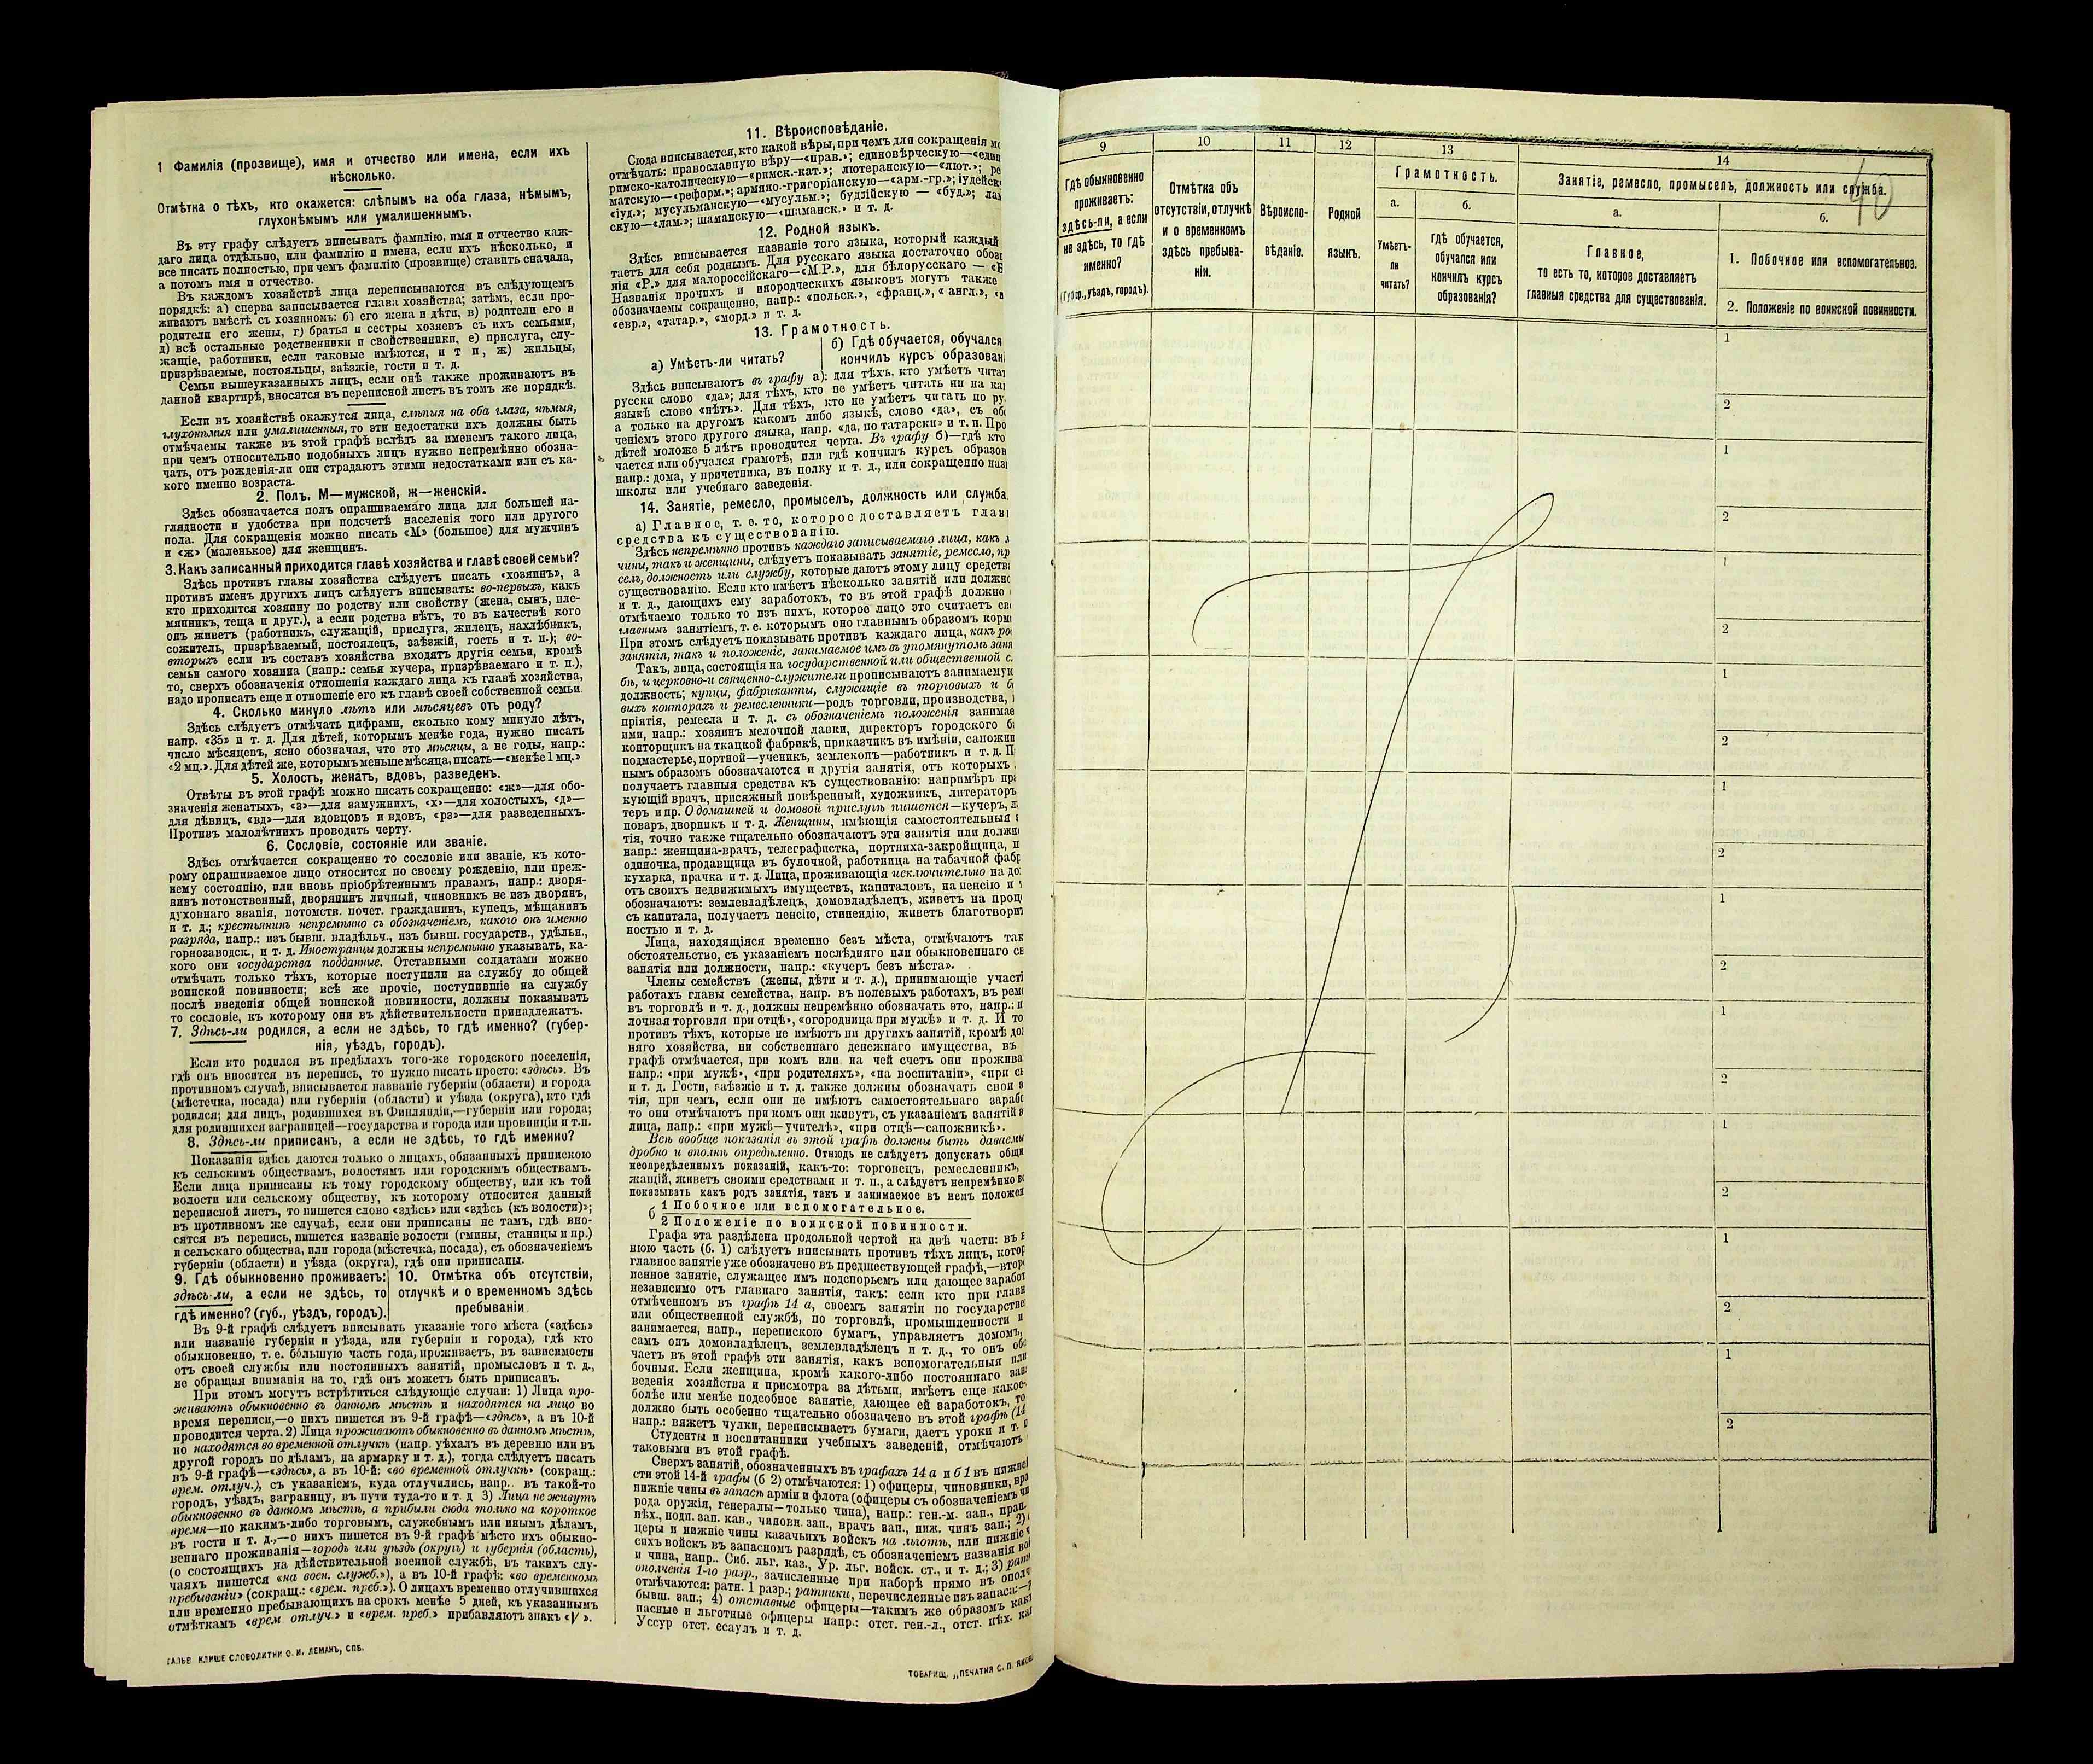 1 Фамилія (прозвище), имя и отчество или имена, если ихъ
нѣсколько.
Отмѣтка о тѣхъ, кто окажется: слѣпымъ на оба глаза, нѣмымъ,
глухонѣмымъ или умалишеннымъ.
Въ эту графу слѣдуетъ вписывать фамилію, имя и отчество каж-
даго лица отдѣльно, или фамилію и имена, если ихъ нѣсколько, и
все писать полностью, при чемъ фамилію (прозвище) ставить сначала,
а потомъ имя и отчество.
Въ каждомъ хозяйствѣ лица переписываются въ слѣдующемъ
порядкѣ: а) сперва записывается глава хозяйства; затѣмъ, если про-
живаютъ вмѣстѣ съ хозяиномъ: б) его жена и дѣти, в) родители его и
родители его жены, г) братья и сестры хозяевъ съ ихъ семьями,
д) всѣ остальные родственники и свойственники, е) прислуга, слу-
жащіе, работники, если таковые имѣются, и т п, ж) жильцы,
призрѣваемые, постояльцы, заѣзжіе, гости и т. д.
Семьи вышеуказанныхъ лицъ, если онѣ также проживаютъ въ
данной квартирѣ, вносятся въ переписной листъ въ томъ же порядкѣ.
Если въ хозяйствѣ окажутся лица, слѣпыя на оба глаза, нѣмыя,
глухонѣмыя или умалишенныя, то эти недостатки ихъ должны быть
отмѣчаемы также въ этой графѣ вслѣдъ за именемъ такого лица,
при чемъ относительно подобныхъ лицъ нужно непремѣнно обозна-
чать, отъ рожденія-ли они страдаютъ этими недостатками или съ ка-
кого именно возраста.
2. Полъ. М—мужской, ж—женскій.
Здѣсь обозначается полъ опрашиваемаго лица для большей на-
глядности и удобства при подсчетѣ населенія того или другого
пола. Для сокращенія можно писать «М» (большое) для мужчинъ
и «ж» (маленькое) для женщинъ.
3. Какъ записанный приходится главѣ хозяйства и главѣ своей семьи?
Здѣсь противъ главы хозяйства слѣдуетъ писать «хозяинъ», а
противъ именъ другихъ лицъ слѣдуетъ вписывать: во-первыхъ, какъ
кто приходится хозяину по родству или свойству (жена, сынъ, пле-
мянникъ, теща и друг.), а если родства нѣтъ, то въ качествѣ кого
онъ живетъ (работникъ, служащій, прислуга, жилецъ, нахлѣбникъ,
сожитель, призрѣваемый, постоялецъ, заѣзжій, гость и т. п.); во-
вторыхъ если въ составъ хозяйства входятъ другія семьи, кромѣ
семьи самого хозяина (напр.: семья кучера, призрѣваемаго и т. п.),
то, сверхъ обозначенія отношенія каждаго лица къ главѣ хозяйства,
надо прописать еще и отношеніе его къ главѣ своей собственной семьи.
4. Сколько минуло лѣтъ или мѣсяцевъ отъ роду?
Здѣсь слѣдуетъ отмѣчать цифрами, сколько кому минуло лѣтъ,
напр. «35» и т. д. Для дѣтей, которымъ менѣе года, нужно писать
число мѣсяцевъ, ясно обозначая, что это мѣсяцы, а не годы, напр.:
«2 мц.». Для дѣтей же, которымъ меньше мѣсяца, писать—«менѣе 1 мц.»
5. Холостъ, женатъ, вдовъ, разведенъ.
Отвѣты въ этой графѣ можно писать сокращенно: «ж»—для обо-
значенія женатыхъ, «з»—для замужнихъ, «х»—для холостыхъ, «д»—
для дѣвицъ, «вд»—для вдовцовъ и вдовъ, «рз»—для разведенныхъ.
Противъ малолѣтнихъ проводить черту.
6. Сословіе, состояніе или званіе.
Здѣсь отмѣчается сокращенно то сословіе или званіе, къ кото-
рому опрашиваемое лицо относится по своему рожденію, или преж-
нему состоянію, или вновь пріобрѣтеннымъ правамъ, напр.: дворя-
нинъ потомственный, дворянинъ личный, чиновникъ не изъ дворянъ,
духовнаго званія, потомств. почет. гражданинъ, купецъ, мѣщанинъ
и т. д.; крестьянинъ непремѣнно съ обозначеніемъ, какого онъ именно
разряда, напр.: изъ бывш. владѣльч., изъ бывш. государств., удѣльн.,
горнозаводск., и т. д. Иностранцы должны непремѣнно указывать, ка-
кого они государства подданные. Отставными солдатами можно
отмѣчать только тѣхъ, которые поступили на службу до общей
воинской повинности; всѣ же прочіе, поступившіе на службу
послѣ введенія общей воинской повинности, должны показывать
то сословіе, къ которому они въ дѣйствительности принадлежатъ.
7. Здѣсь-ли родился, а если не здѣсь, то гдѣ именно? (губер-
нія, уѣздъ, городъ).
Если кто родился въ предѣлахъ того-же городского поселенія,
гдѣ онъ вносится въ перепись, то нужно писать просто: «здѣсь». Въ
противномъ случаѣ, вписывается названіе губерніи (области) и города
(мѣстечка, посада) или губерніи (области) и уѣзда (округа), кто гдѣ
родился; для лицъ, родившихся въ Финляндіи,—губерніи или города;
для родившихся заграницей—государства и города или провинціи и т.п.
8. Здѣсь-ли приписанъ, а если не здѣсь, то гдѣ именно?
Показанія здѣсь даются только о лицахъ, обязанныхъ припискою
къ сельскимъ обществамъ, волостямъ или городскимъ обществамъ.
Если лица приписаны къ тому городскому обществу, или къ той
волости или сельскому обществу, къ которому относится данный
переписной листъ, то пишется слово «здѣсь» или «здѣсь (къ волости)»;
въ противномъ же случаѣ, если они приписаны не тамъ, гдѣ вно-
сятся въ перепись, пишется названіе волости (гмины, станицы и пр.)
и сельскаго общества, или города (мѣстечка, посада), съ обозначеніемъ
губерніи (области) и уѣзда (округа), гдѣ они приписаны.
9. Гдѣ обыкновенно проживаетъ:
здѣсь-ли, а если не здѣсь, то
гдѣ именно? (губ., уѣздъ, городъ).
10. Отмѣтка объ отсутствіи,
отлучкѣ и о временномъ здѣсь
пребываніи.
Въ 9-й графѣ слѣдуетъ вписывать указаніе того мѣста («здѣсь»
или названіе губерніи и уѣзда, или губерніи и города), гдѣ кто
обыкновенно, т. е. бо́льшую часть года, проживаетъ, въ зависимости
отъ своей службы или постоянныхъ занятій, промысловъ и т. д.,
не обращая вниманія на то, гдѣ онъ можетъ быть приписанъ.
При этомъ могутъ встрѣтиться слѣдующіе случаи: 1) Лица про-
живаютъ обыкновенно въ данномъ мѣстѣ и находятся на лицо во
время переписи,—о нихъ пишется въ 9-й графѣ—«здѣсь», а въ 10-й
проводится черта. 2) Лица проживаютъ обыкновенно въ данномъ мѣстѣ,
но находятся во временной отлучкѣ (напр. уѣхалъ въ деревню или въ
другой городъ по дѣламъ, на ярмарку и т. д.), тогда слѣдуетъ писать
въ 9-й графѣ—«здѣсь», а въ 10-й: «во временной отлучкѣ» (сокращ.:
врем. отлуч.), съ указаніемъ, куда отлучились, напр.. въ такой-то
городъ, уѣздъ, заграницу, въ пути туда-то и т. д 3) Лица не живутъ
обыкновенно въ данномъ мѣстѣ, а прибыли сюда только на короткое
время—по какимъ-либо торговымъ, служебнымъ или инымъ дѣламъ,
въ гости и т. д.,—о нихъ пишется въ 9-й графѣ мѣсто ихъ обыкно-
веннаго проживанія—городъ или уѣздъ (округъ) и губернія (область),
(о состоящихъ на дѣйствительной военной службѣ, въ такихъ слу-
чаяхъ пишется «на воен. служб.»), а въ 10-й графѣ: «во временномъ
пребываніи» (сокращ.: «врем. преб.»). О лицахъ временно отлучившихся
или временно пребывающихъ на срокъ менѣе 5 дней, къ указаннымъ
отмѣткамъ «врем отлуч.» и «врем. преб.» прибавляютъ знакъ «V».
КЛИШЕ СЛОВОЛИТНИ О. И. ЛЕМАНЪ, СПБ.
11. Вѣроисповѣданіе.
Сюда вписывается, кто какой вѣры, при чемъ для сокращенія мо
отмѣчать: православную вѣру—«прав.»; единовѣрческую—«един
римско-католическую—«римск.-кат.»; лютеранскую—«лют.»; ре
матскую—«реформ.»; армяно.-григоріанскую—«арм.-гр.»; іудейск
«іуд.»; мусульманскую—«мусульм.»; буддійскую — «буд.»; лам
скую—«лам.»; шаманскую—«шаманск.» и т. д.
12. Родной языкъ.
Здѣсь вписывается названіе того языка, который каждый
таетъ для себя роднымъ. Для русскаго языка достаточно обоз
нія «Р.» для малороссійскаго—«М.Р.», для бѣлорусскаго — «Б
Названія прочихъ и инородческихъ языковъ могутъ также
обозначаемы сокращенно, напр.: «польск.», «франц.», « англ.»,
«евр.», «татар.», «морд.» и т. д.
13. Грамотность.
а) Умѣетъ-ли читать?
б) Гдѣ обучается, обучался
кончилъ курсъ образован
Здѣсь вписываютъ въ графу а): для тѣхъ, кто умѣетъ читат
русски слово «да»; для тѣхъ, кто не умѣетъ читать ни на как
языкѣ слово «нѣтъ». Для тѣхъ, кто не умѣетъ читать по ру
а только на другомъ какомъ либо языкѣ, слово «да», съ об
ченіемъ этого другого языка, напр. «да, по татарски» и т. п. Про
дѣтей моложе 5 лѣтъ проводится черта. Въ графу б)—гдѣ кто
чается или обучался грамотѣ, или гдѣ кончилъ курсъ образов
напр.: дома, у причетника, въ полку и т. д., или сокращенно наз
школы или учебнаго заведенія.
14. Занятіе, ремесло, промыселъ, должность или служба.
а) Главное, т. е. то, которое доставляетъ глав
средства къ существованію.
Здѣсь непремѣнно противъ каждаго записываемаго лица, какъ
чины, такъ и женщины, слѣдуетъ показывать занятіе, ремесло, пр
селъ, должность или службу, которые даютъ этому лицу средств
существованію. Если кто имѣетъ нѣсколько занятій или должно
и т. д., дающихъ ему заработокъ, то въ этой графѣ должно
отмѣчаемо только то изъ нихъ, которое лицо это считаетъ св
главнымъ занятіемъ, т. е. которымъ оно главнымъ образомъ корм
При этомъ слѣдуетъ показывать противъ каждаго лица, какъ ро
занятія, такъ и положеніе, занимаемое имъ въ упомянутомъ заня
Такъ, лица, состоящія на государственной или общественной с
бѣ, и церковно-и священно-служители прописываютъ занимаему
должность; купцы, фабриканты, служащіе въ торговыхъ и б
выхъ конторахъ и ремесленники—родъ торговли, производства,
пріятія, ремесла и т. д. съ обозначеніемъ положенія занимае
ими, напр.: хозяинъ мелочной лавки, директоръ городского б
конторщикъ на ткацкой фабрикѣ, приказчикъ въ имѣніи, сапожни
подмастерье, портной—ученикъ, землекопъ—работникъ и т. д. П
нымъ образомъ обозначаются и другія занятія, отъ которыхъ
получаетъ главныя средства къ существованію: напримѣръ пра
кующій врачъ, присяжный повѣренный, художникъ, литераторъ
теръ и пр. О домашней и домовой прислугѣ пишется—кучеръ, л
поваръ, дворникъ и т. д. Женщины, имѣющія самостоятельныя
тія, точно также тщательно обозначаютъ эти занятія или должн
напр.: женщина-врачъ, телеграфистка, портниха-закройщица, п
одиночка, продавщица въ булочной, работница на табачной фабр
кухарка, прачка и т. д. Лица, проживающія исключительно на до
отъ своихъ недвижимыхъ имуществъ, капиталовъ, на пенсію и т
обозначаютъ: землевладѣлецъ, домовладѣлецъ, живетъ на проц
съ капитала, получаетъ пенсію, стипендію, живетъ благотворит
ностью и т. д.
Лица, находящіяся временно безъ мѣста, отмѣчаютъ так
обстоятельство, съ указаніемъ послѣдняго или обыкновеннаго св
занятія или должности, напр.: «кучеръ безъ мѣста».
Члены семействъ (жены, дѣти и т. д.), принимающіе участі
работахъ главы семейства, напр. въ полевыхъ работахъ, въ рем
въ торговлѣ и т. д., должны непремѣнно обозначать это, напр.:
лочная торговля при отцѣ», «огородница при мужѣ» и т. д. И то
противъ тѣхъ, которые не имѣютъ ни другихъ занятій, кромѣ до
няго хозяйства, ни собственнаго денежнаго имущества, въ
графѣ отмѣчается, при комъ или на чей счетъ они прожива
напр.: «при мужѣ», «при родителяхъ», «на воспитаніи», «при с
и т. д. Гости, заѣзжіе и т. д. также должны обозначать свои з
тія, при чемъ, если они не имѣютъ самостоятельнаго зарабо
то они отмѣчаютъ при комъ они живутъ, съ указаніемъ занятій э
лица, напр.: «при мужѣ—учителѣ», «при отцѣ—сапожникѣ».
Всѣ вообще показанія въ этой графѣ должны быть даваемы
дробно и вполнѣ опредѣленно. Отнюдь не слѣдуетъ допускать общи
неопредѣленныхъ показаній, какъ-то: торговецъ, ремесленникъ,
жащій, живетъ своими средствами и т. п., а слѣдуетъ непремѣнно
показывать какъ родъ занятія, такъ и занимаемое въ немъ положен
б 1 Побочное или вспомогательное.
2 Положеніе по воинской повинности.
Графа эта раздѣлена продольной чертой на двѣ части: въ в
нюю часть (б. 1) слѣдуетъ вписывать противъ тѣхъ лицъ, котор
главное занятіе уже обозначено въ предшествующей графѣ,—втор
пенное занятіе, служащее имъ подспорьемъ или дающее заработ
независимо отъ главнаго занятія, такъ: если кто при главн
отмѣченномъ въ графѣ 14 а, своемъ занятіи по государстве
или общественной службѣ, по торговлѣ, промышленности и
занимается, напр., перепискою бумагъ, управляетъ домомъ,
самъ онъ домовладѣлецъ, землевладѣлецъ и т. д., то онъ обо
чаетъ въ этой графѣ эти занятія, какъ вспомогательныя или
бочныя. Если женщина, кромѣ какого-либо постояннаго зан
веденія хозяйства и присмотра за дѣтьми, имѣетъ еще какое-
болѣе или менѣе подсобное занятіе, дающее ей заработокъ, то
должно быть особенно тщательно обозначено въ этой графѣ (14
напр.: вяжетъ чулки, переписываетъ бумаги, даетъ уроки и т.
Студенты и воспитанники учебныхъ заведеній, отмѣчаютъ
таковыми въ этой графѣ.
Сверхъ занятій, обозначенныхъ въ графахъ 14 а и б 1 въ нижней
сти этой 14-й графы (б 2) отмѣчаются: 1) офицеры, чиновники, вра
нижніе чины въ запасѣ арміи и флота (офицеры съ обозначеніемъ чи
рода оружія, генералы—только чина), напр.: ген.-м. зап., прап.
пѣх., подп. зап. кав., чиновн. зап., врачъ зап., ниж. чинъ зап.; 2)
церы и нижніе чины казачьихъ войскъ на льготѣ, или нижніе ч
сихъ войскъ въ запасномъ разрядѣ, съ обозначеніемъ названія во
и чина, напр.. Сиб. льг. каз., Ур. льг. войск. ст., и т. д.; 3) ратн
ополченія 1-го разр., зачисленные при наборѣ прямо въ ополч
отмѣчаются: ратн. 1 разр.; ратники, перечисленные изъ запаса:—
бывш. зап.; 4) отставные офицеры—такимъ же образомъ какъ
пасные и льготные офицеры напр.: отст. ген.-л., отст. пѣх. кап
Уссур отст. есаулъ и т. д.
ТОВАРИЩ. „ПЕЧАТНЯ С. П. ЯКОВ
40
9
10
11
12
13
14
Гдѣ обыкновенно
проживаетъ:
здѣсь-ли, а если
не здѣсь, то гдѣ
именно?
(Губер., уѣздъ, городъ).
Отмѣтка объ
отсутствіи, отлучкѣ
и о временномъ
здѣсь пребыва-
ніи.
Вѣроиспо-
вѣданіе.
Родной
языкъ.
Грамотность.
а.
б.
Умѣетъ-
ли
читать?
гдѣ обучается,
обучался или
кончилъ курсъ
образованія?
Занятіе, ремесло, промыселъ, должность или служба.
а.
б.
Главное,
то есть то, которое доставляетъ
главныя средства для существованія.
1. Побочное или вспомогательное.
2. Положеніе по воинской повинности.
1
2
1
2
1
2
1
2
1
2
1
2
1
2
1
2
1
2
1
2